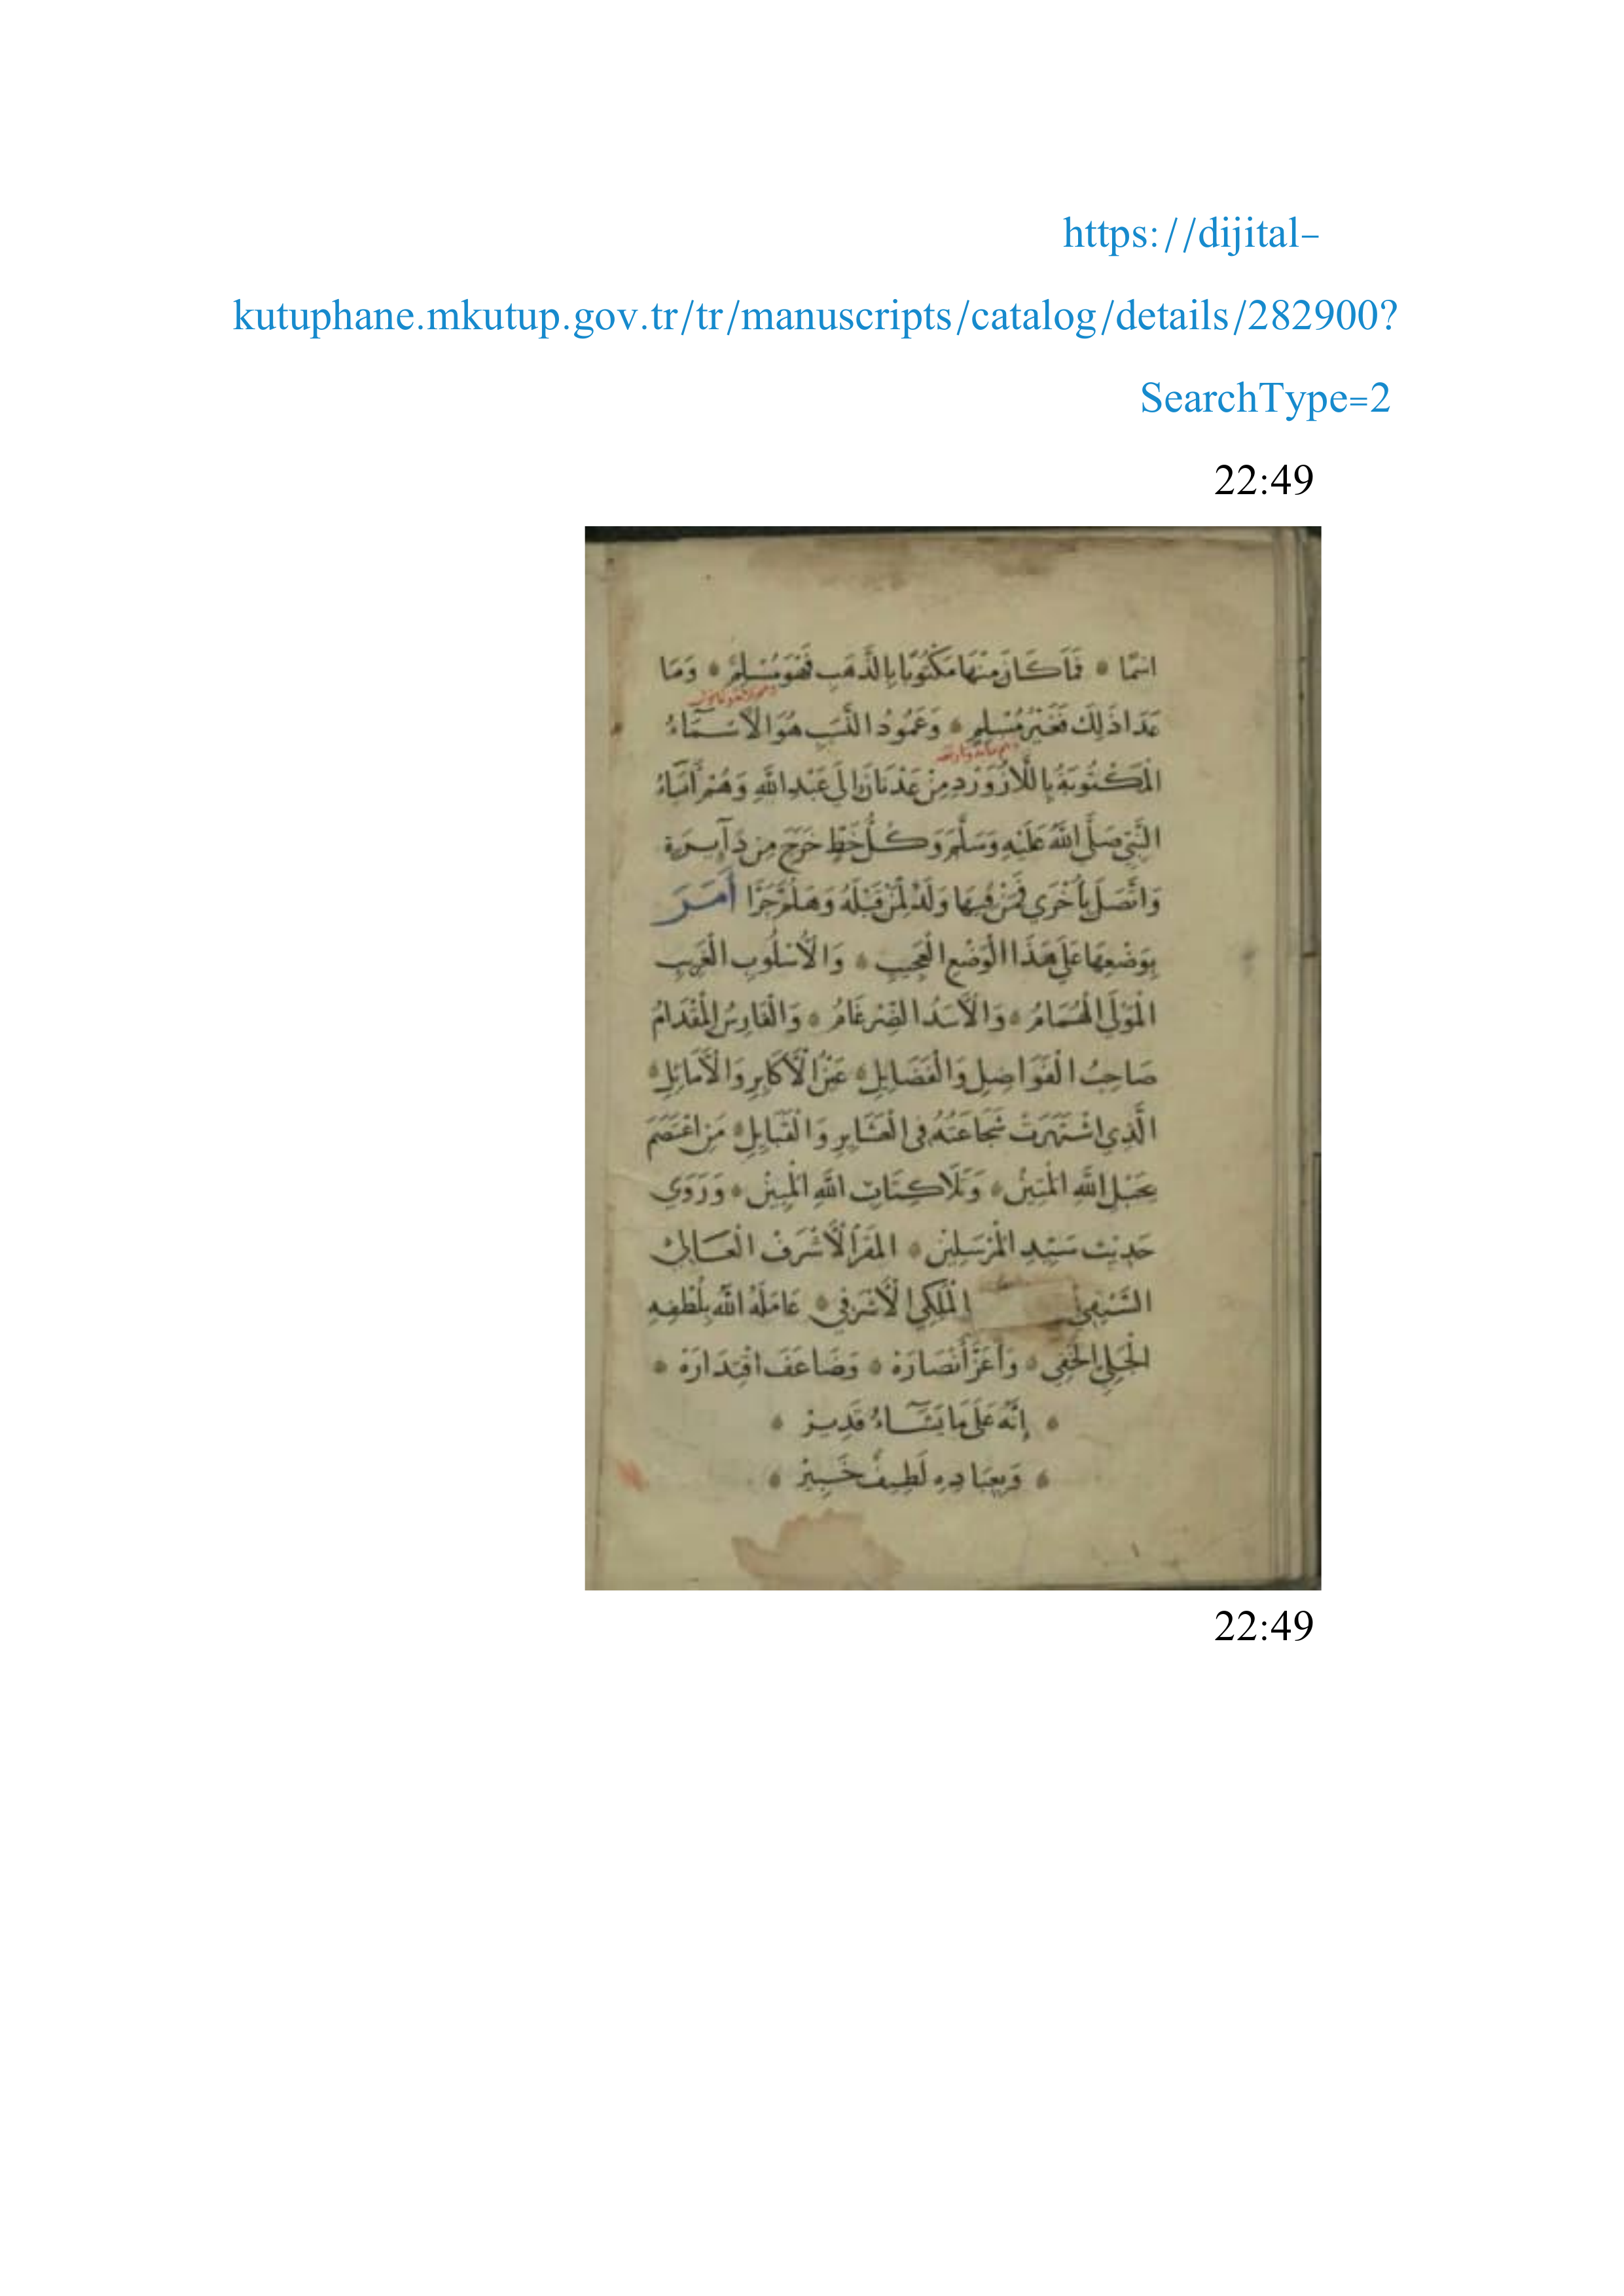 https://dijital-
kutuphane.mkutup.gov.tr/tr/manuscripts/catalog/details/282900?
SearchType=2
22:49
اسْمًا * فَمَا كَانَ مِنْهَا مَكْتُوبًا بِالذَّهَبِ فَهُوَ مُسْلِمٌ * وَمَا
عَدَا ذَلِكَ فَغَيْرُ مُسْلِمٍ * وَعَمُودُ النَّسَبِ هُوَ الْأَسْمَآءُ
الْمَكْتُوبَةُ بِاللَّازُوَرْدِ مِنْ عَدْنَانَ إِلَى عَبْدِ اللَّهِ وَهُمْ آبَاءُ
النَّبِيِّ صَلَّى اللَّهُ عَلَيْهِ وَسَلَّمَ وَكُلُّ خَطٍّ خَرَجَ مِنْ دَآيِرَةٍ
وَاتَّصَلَ بِأُخْرَى فَمَنْ فِيهَا وَلَدٌ لِمَنْ قَبْلَهُ وَهَلُمَّ جَرًّا أَمَرَ
بِوَضْعِهَا عَلَى هَذَا الْوَضْعِ الْعَجِيبِ * وَالْأُسْلُوبِ الْغَرِيبِ
الْمَوْلَى الْهُمَامُ * وَالْأَسَدُ الضِّرْغَامُ * وَالْفَارِسُ الْمِقْدَامُ
صَاحِبُ الْفَوَاضِلِ وَالْفَضَايِلِ * عَيْنُ الْأَكَابِرِ وَالْأَمَاثِلِ *
الَّذِي اشْتَهَرَتْ شَجَاعَتُهُ فِي الْعَشَايِرِ وَالْقَبَايِلِ * مَنِ اعْتَصَمَ
بِحَبْلِ اللَّهِ الْمَتِينْ * وَتَلَا كِتَابَ اللَّهِ الْمُبِينْ * وَرَوَى
حَدِيثَ سَيِّدِ الْمُرْسَلِينْ * الْمَقَرُّ الْأَشْرَفُ الْعَالِيُّ
السَّيْفِيُّ الْمَلَكِيُّ الْأَشْرَفِيُّ * عَامَلَهُ اللَّهُ بِلُطْفِهِ
الْجَلِيِّ الْخَفِيِّ * وَأَعَزَّ أَنْصَارَهْ * وَضَاعَفَ اقْتِدَارَهْ *
* إِنَّهُ عَلَى مَا يَشَآءُ قَدِيرٌ *
* وَبِعِبَادِهِ لَطِيفٌ خَبِيرٌ *
22:49